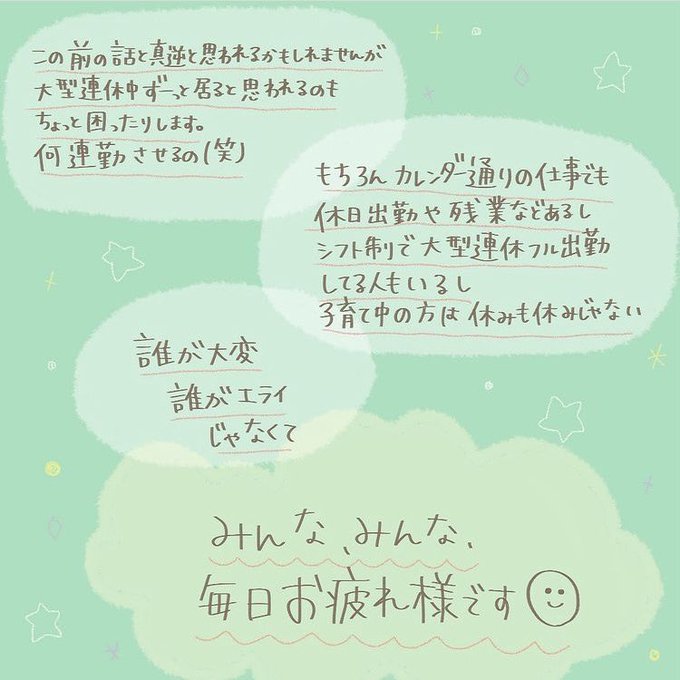 この前の話と真逆と思われるかもしれませんが
大型連休中ずーっと居ると思われるのも
ちょっと困ったりします。
何連勤させるの(笑)
もちろんカレンダー通りの仕事でも
休日出勤や残業などあるし
シフト制で大型連休フル出勤
してる人もいるし
子育て中の方は休みも休みじゃない
誰が大変
誰がエライ
じゃなくて
みんな、みんな、
毎日お疲れ様です